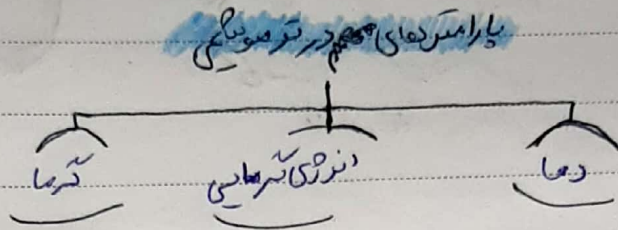 پارامترهای مهم در ترموشیمی
دما
انرژی گرمایی
گرما